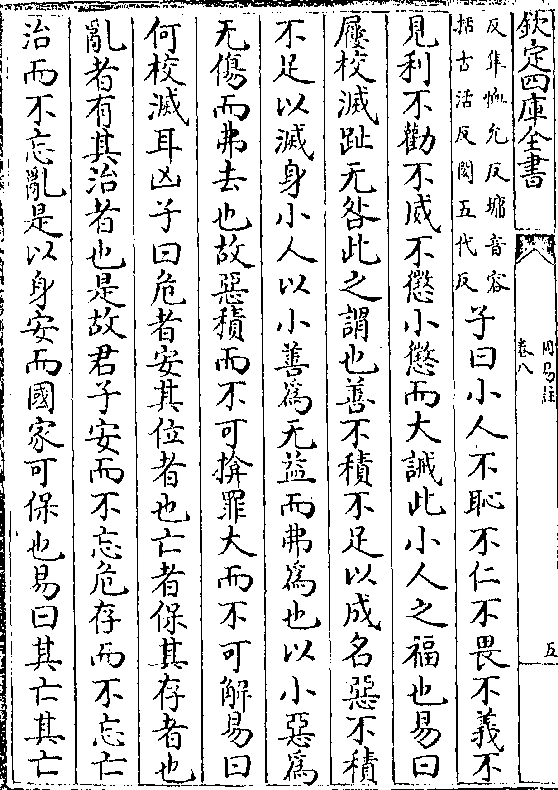 欽定四庫全書
周易註
卷八
五
反隼恤允反墉音容
括古活反閡五代反
子曰小人不恥不仁不畏不義不
見利不勸不威不懲小懲而大誡此小人之福也易曰
屨校滅趾无咎此之謂也善不積不足以成名惡不積
不足以滅身小人以小善爲无益而弗爲也以小惡爲
无傷而弗去也故惡積而不可揜罪大而不可解易曰
何校滅耳凶子曰危者安其位者也亡者保其存者也
亂者有其治者也是故君子安而不忘危存而不忘亡
治而不忘亂是以身安而國家可保也易曰其亡其亡